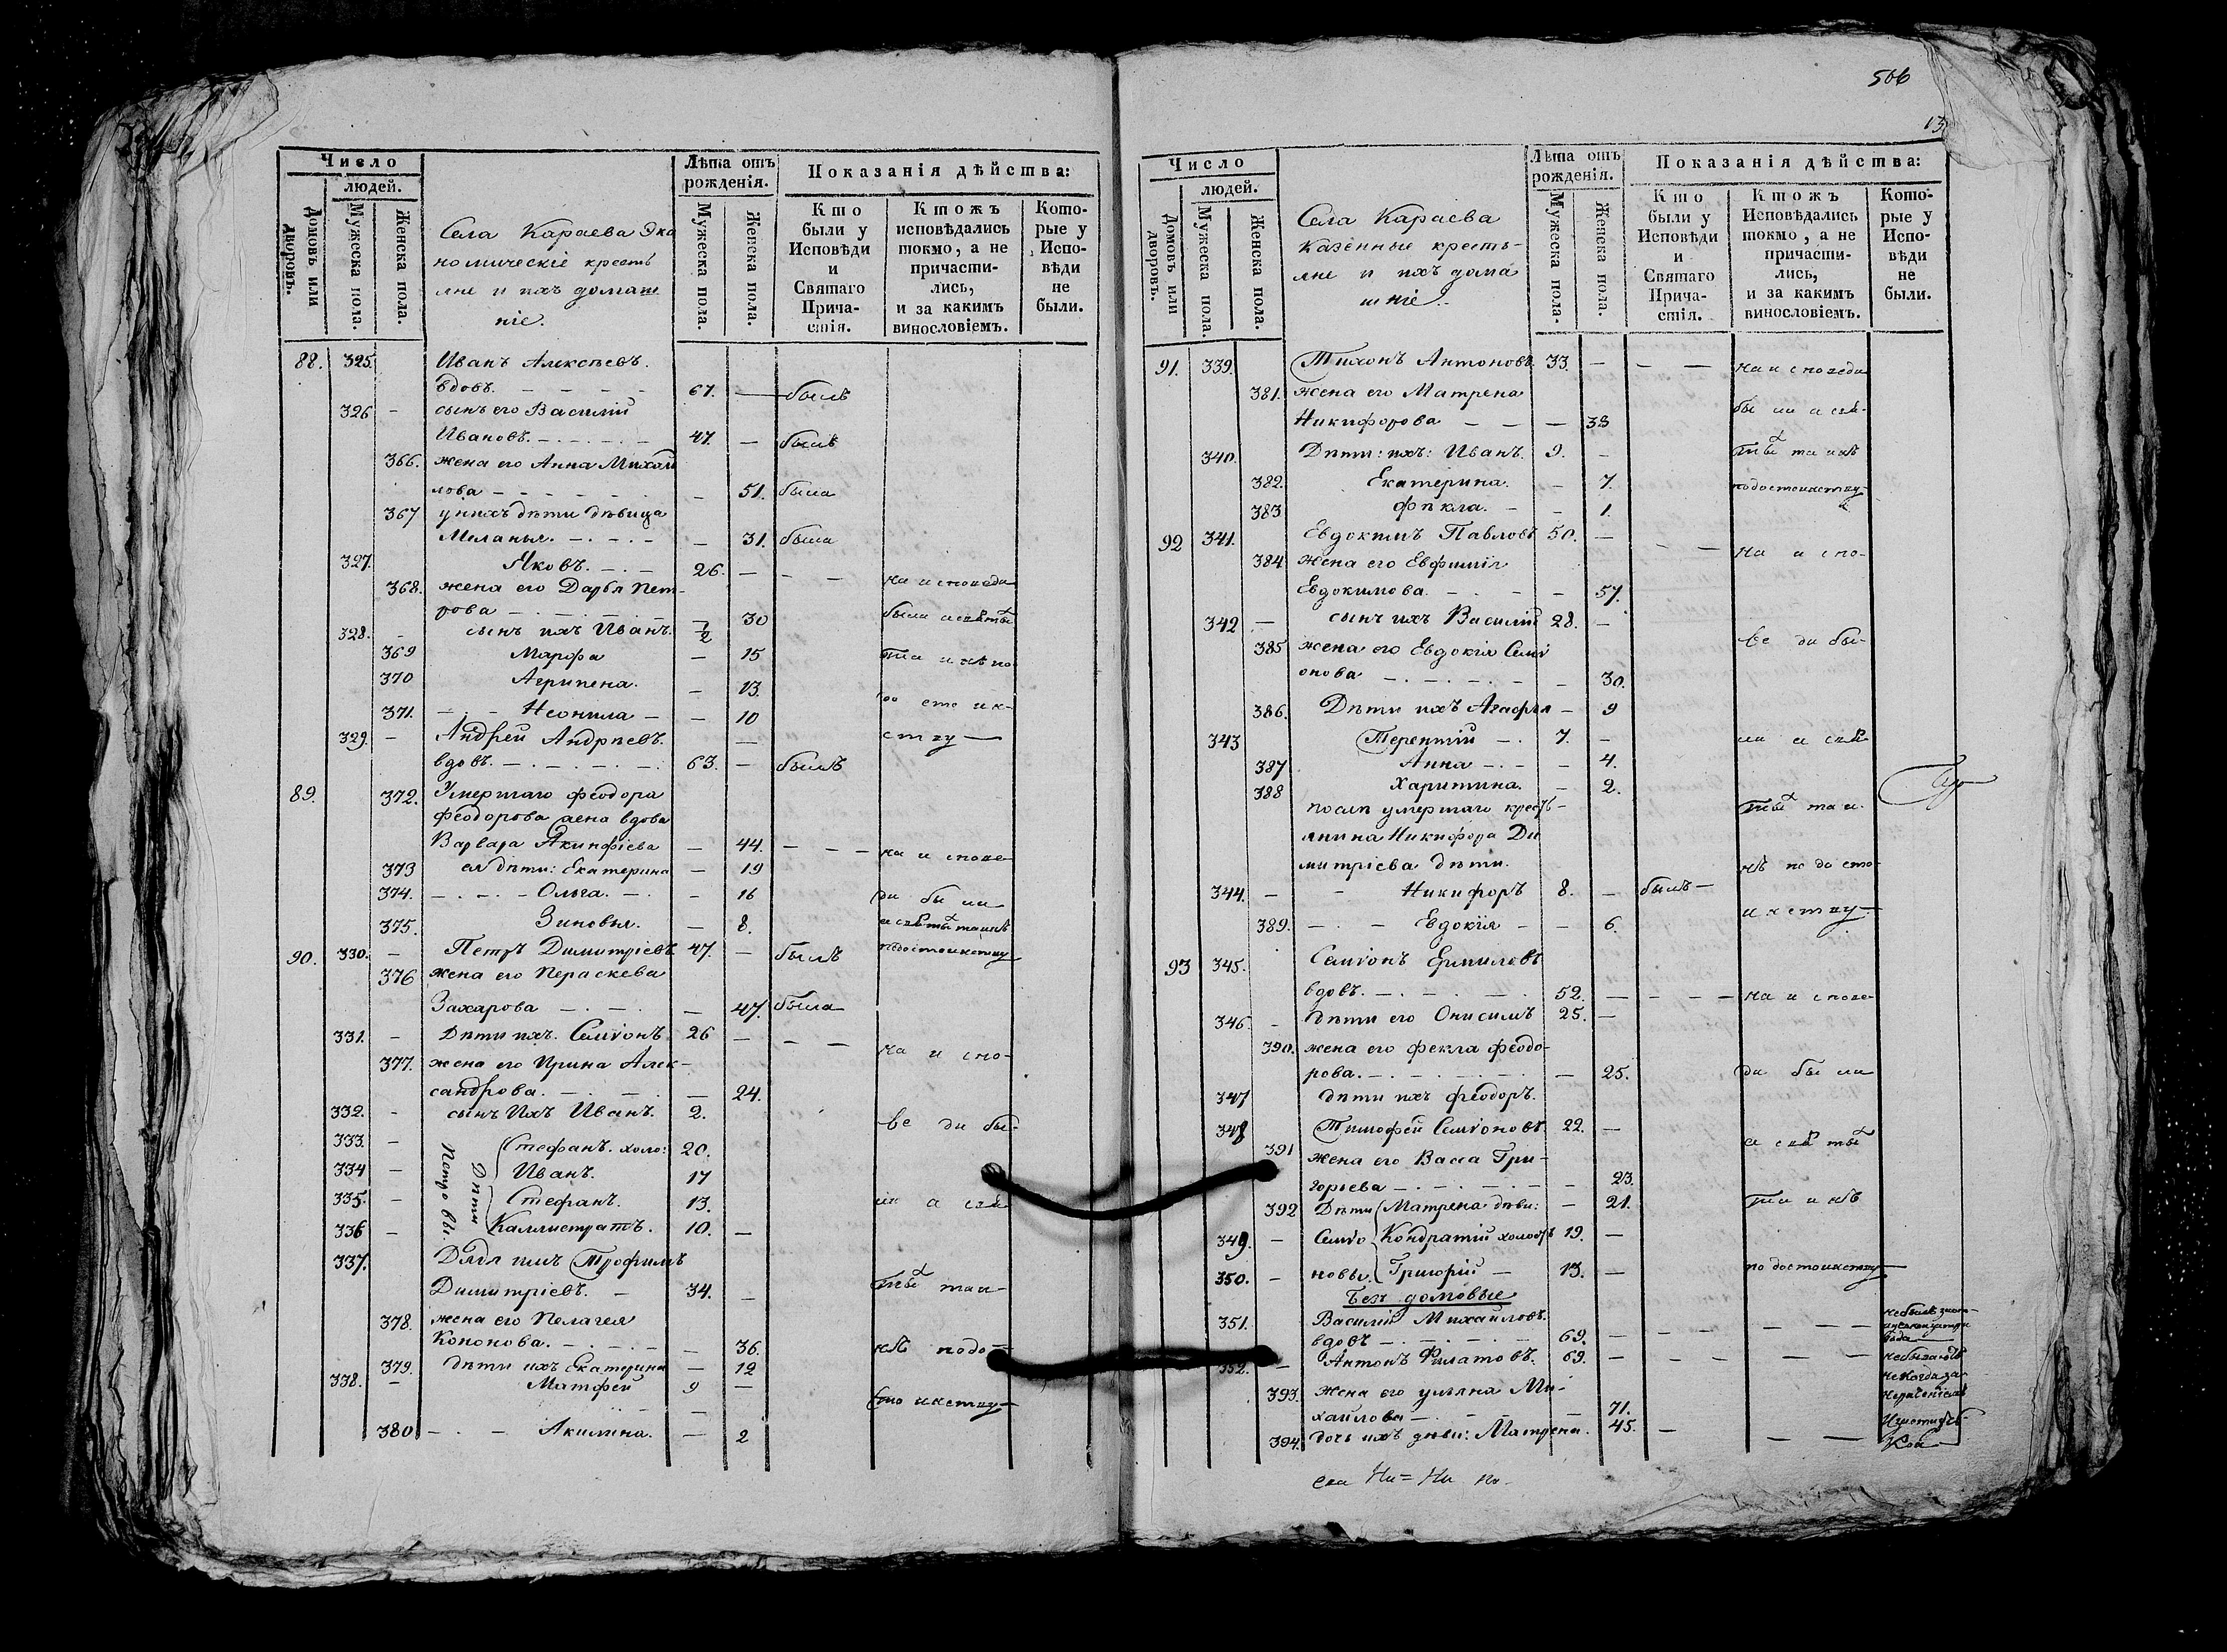 506
13
Число
людей.
Домовъ или дворовъ.
Мужеска пола.
Женска пола.
Села Караева Эко
номическіе кресть
яне и ихъ домаш
ніе.
Лѣта отъ рожденія.
Мужеска пола.
Женска пола.
Показанія дѣйства:
Кто были у Исповѣди и Святаго Прича- стія.
Ктожъ исповѣдались токмо, а не причасти- лись, и за какимъ винословіемъ.
Кото- рые у Испо- вѣди не были.
88. 325. Иванъ Алексѣевъ.
вдовъ. 67. — былъ
326 - сынъ его Василій
Ивановъ. 47. — былъ
366. жена его Анна Михай
лова — 51. была
367 у нихъ дѣти дѣвица
Меланья. — 31. была
327. Яковъ. 26. — на исповеди
368. жена его Дарья Пет-
рова — 30 были а святы
328. - сынъ ихъ Иванъ. 1/2
369 Марфа — 15
370 Агрипена. — 13.
371. Неонила — 10
329. - Андрей Андрѣевъ.
вдовъ. 63. — былъ
89. 372. Умершаго Феодора
Феодорова жена вдова
Варвара Акинфіева — 44. — на испове-
373 ея дѣти: Екатерина — 19
374. Ольга. - 16 ди были
375. Зиновья. — 8.
90. 330. - Петръ Димитріевъ 47. — былъ
376 жена его Пераскева
Захарова — 47. была
331. - Дѣти ихъ. Семіонъ 26 — на испо-
377. жена его Ирина Алек-
сандрова. — 24.
332. - сынъ ихъ Иванъ. 2. ве ди бы-
Дѣти Петровы.
333. - Стефанъ. холо: 20.
334 - Иванъ. 17
335. - Стефанъ. 13. ли а свя
336 - Каллистратъ. 10. —
337. Дядя имъ Трофимъ
Димитріевъ. 34. —
378. жена его Пелагея
Кононова. — 36.
379. дѣти ихъ Екатерина — 12
338. - Матфей 9 —
380 Акилина. — 2
Число
людей.
Домовъ или дворовъ.
Мужеска пола.
Женска пола.
Села Караева
казенные кресть-
яне и ихъ дома
шніе.
Лѣта отъ рожденія.
Мужеска пола.
Женска пола.
Показанія дѣйства:
Кто были у Исповѣди и Святаго Прича- стія.
Ктожъ Исповѣдались токмо, а не причасти- лись, и за какимъ винословіемъ.
Кото- рые у Испо- вѣди не были.
91. 339. Тихонъ Антоновъ. 33. — на исповеди
381. жена его Матрена
Никифорова — 33 бы ли а свя-
340. Дѣти: ихъ: Иванъ. 9. -
382. Екатерина. — 7.
383 Фѣкла. - 1.
92 341. Евдокимъ Павловъ 50. — на испо-
384 жена его Евфимія
Евдокимова. — 57.
342 — сынъ ихъ Василій 28. — ве ди бы-
385 жена его Евдокія Семі
онова — 30.
386. Дѣти ихъ Агафья — 9
343 Терентій 7. - ли а свя-
387 Анна — 4.
388 Харитина. — 2.
послѣ умершаго кресть-
янина Никифора Ди
митріева дѣти.
344. - Никифоръ 8. — былъ —
389. Евдокія — 6.
93 345. Семіонъ Ермилевъ
вдовъ. 52. — на испове-
346. - Дѣти его Онисимъ 25. —
390. жена его Фекла Феодо-
рова. — 25. ди были
347 дѣти ихъ Феодоръ.
348 Тимофей Семіоновъ 22. —
391 жена его Васса Гри-
горьева — 23.
392 Дѣти Матрена дѣви: — 21.
349. - Семіо Кондратій холостъ 19. —
350. - новы. Григорій — 13. —
Безъ домовые
351. Василій Михайловъ.
вдовъ 69. —
352. - Антонъ Филатовъ. 69. —
393. Жена его Ульяна Ми-
хайлова — 71.
394. дочь ихъ дѣви: Матрена. 45. —